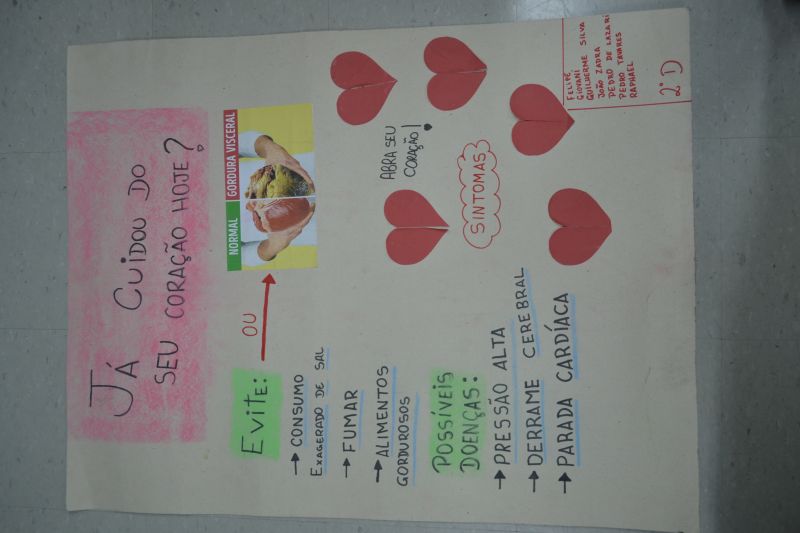 JÁ CUIDOU DO
SEU CORAÇÃO HOJE?
EVITE:
→ CONSUMO
EXAGERADO DE SAL
→ FUMAR
→ ALIMENTOS
GORDUROSOS
OU
NORMAL GORDURA VISCERAL
POSSÍVEIS
DOENÇAS:
→ PRESSÃO ALTA
→ DERRAME CEREBRAL
→ PARADA CARDÍACA
ABRA SEU
CORAÇÃO!
SINTOMAS
FELIPE
GIOVANI
GUILHERME SILVA
JOÃO ZADRA
PEDRO DE LAZARI
PEDRO TAVARES
RAPHAEL
2º D